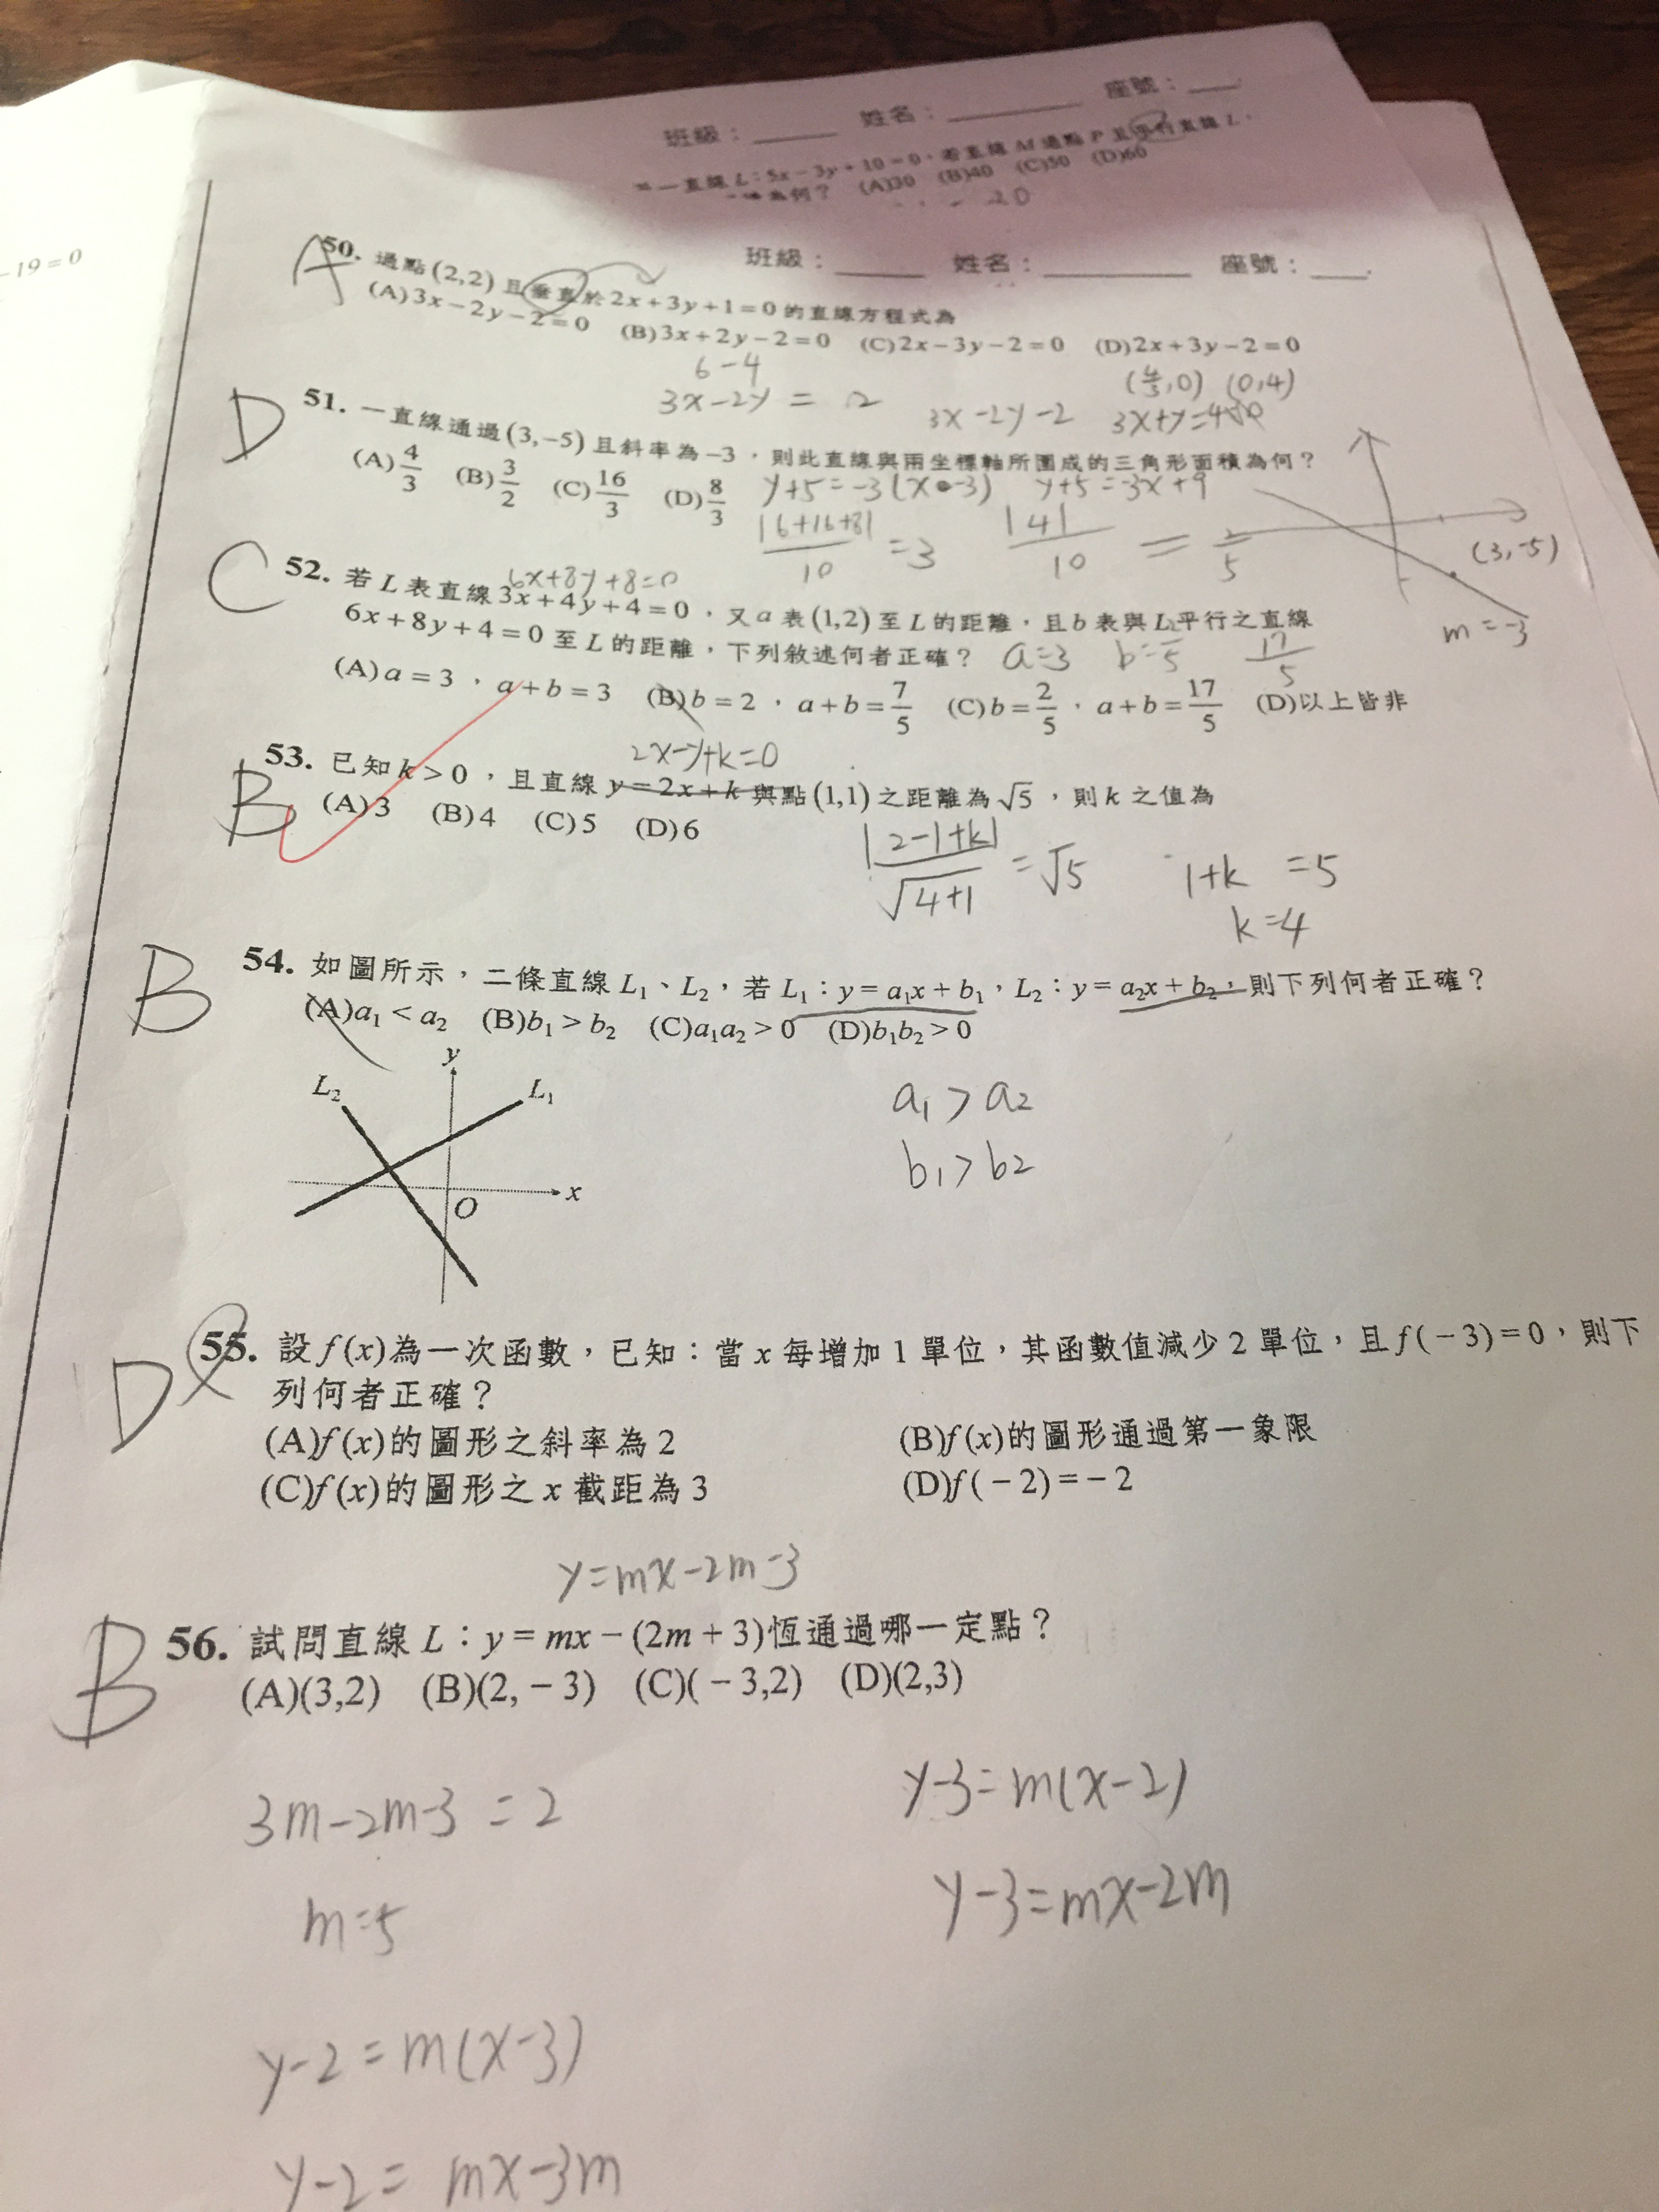 班級：____ 姓名：________ 座號：___.
一直線 L：5x－3y＋10＝0，若直線 M 通過點 P 且平行直線 L，
為何？ (A)30 (B)40 (C)50 (D)60
20
-19＝0
班級：____ 姓名：________ 座號：___.
A
50. 通點(2,2)且垂直於2x＋3y＋1＝0的直線方程式為
(A)3x－2y－2＝0 (B)3x＋2y－2＝0 (C)2x－3y－2＝0 (D)2x＋3y－2＝0
6-4
3x-2y = 2
3x-2y-2
(4/3,0) (0,4)
D
51. 一直線通過(3,−5)且斜率為−3，則此直線與兩坐標軸所圍成的三角形面積為何？
(A)4/3 (B)3/2 (C)16/3 (D)8/3
y+5=-3(x-3) y+5=-3x+9
|6+16+8|/10 =3 |4|/10 = 2/5
(3,-5)
m=-3
C
6x+8y+8=0
52. 若 L 表直線3x＋4y＋4＝0，又 a 表(1,2)至 L 的距離，且 b 表與 L 平行之直線
6x＋8y＋4＝0至 L 的距離，下列敘述何者正確？
a=3
17/5
(A)a＝3，a＋b＝3 (B)b＝2，a＋b＝7/5 (C)b＝2/5，a＋b＝17/5 (D)以上皆非
2x-y+k=0
B
53. 已知 k＞0，且直線 y＝2x＋k 與點(1,1)之距離為√5，則 k 之值為
(A)3 (B)4 (C)5 (D)6
|2-1+k|/√4+1 = √5
1+k =5
k=4
B
54. 如圖所示，二條直線 L₁、L₂，若 L₁：y＝a₁x＋b₁，L₂：y＝a₂x＋b₂，則下列何者正確？
(A)a₁＜a₂ (B)b₁＞b₂ (C)a₁a₂＞0 (D)b₁b₂＞0
y
L₂ L₁
O x
a₁>a₂
b₁>b₂
D
55. 設 f(x)為一次函數，已知：當 x 每增加 1 單位，其函數值減少 2 單位，且 f(－3)＝0，則下
列何者正確？
(A)f(x)的圖形之斜率為 2 (B)f(x)的圖形通過第一象限
(C)f(x)的圖形之 x 截距為 3 (D)f(－2)＝－2
y=mx-2m-3
B
56. 試問直線 L：y＝mx－(2m＋3)恆通過哪一定點？
(A)(3,2) (B)(2,－3) (C)(－3,2) (D)(2,3)
3m-2m-3 = 2
m=5
y-3=m(x-2)
y-3=mx-2m
y-2=m(x-3)
y-2= mx-3m